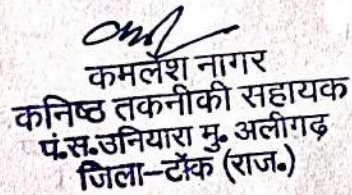 कमलेश नागर
कनिष्ठ तकनीकी सहायक
पं.स.उनियारा मु. अलीगढ़
जिला-टोंक (राज.)